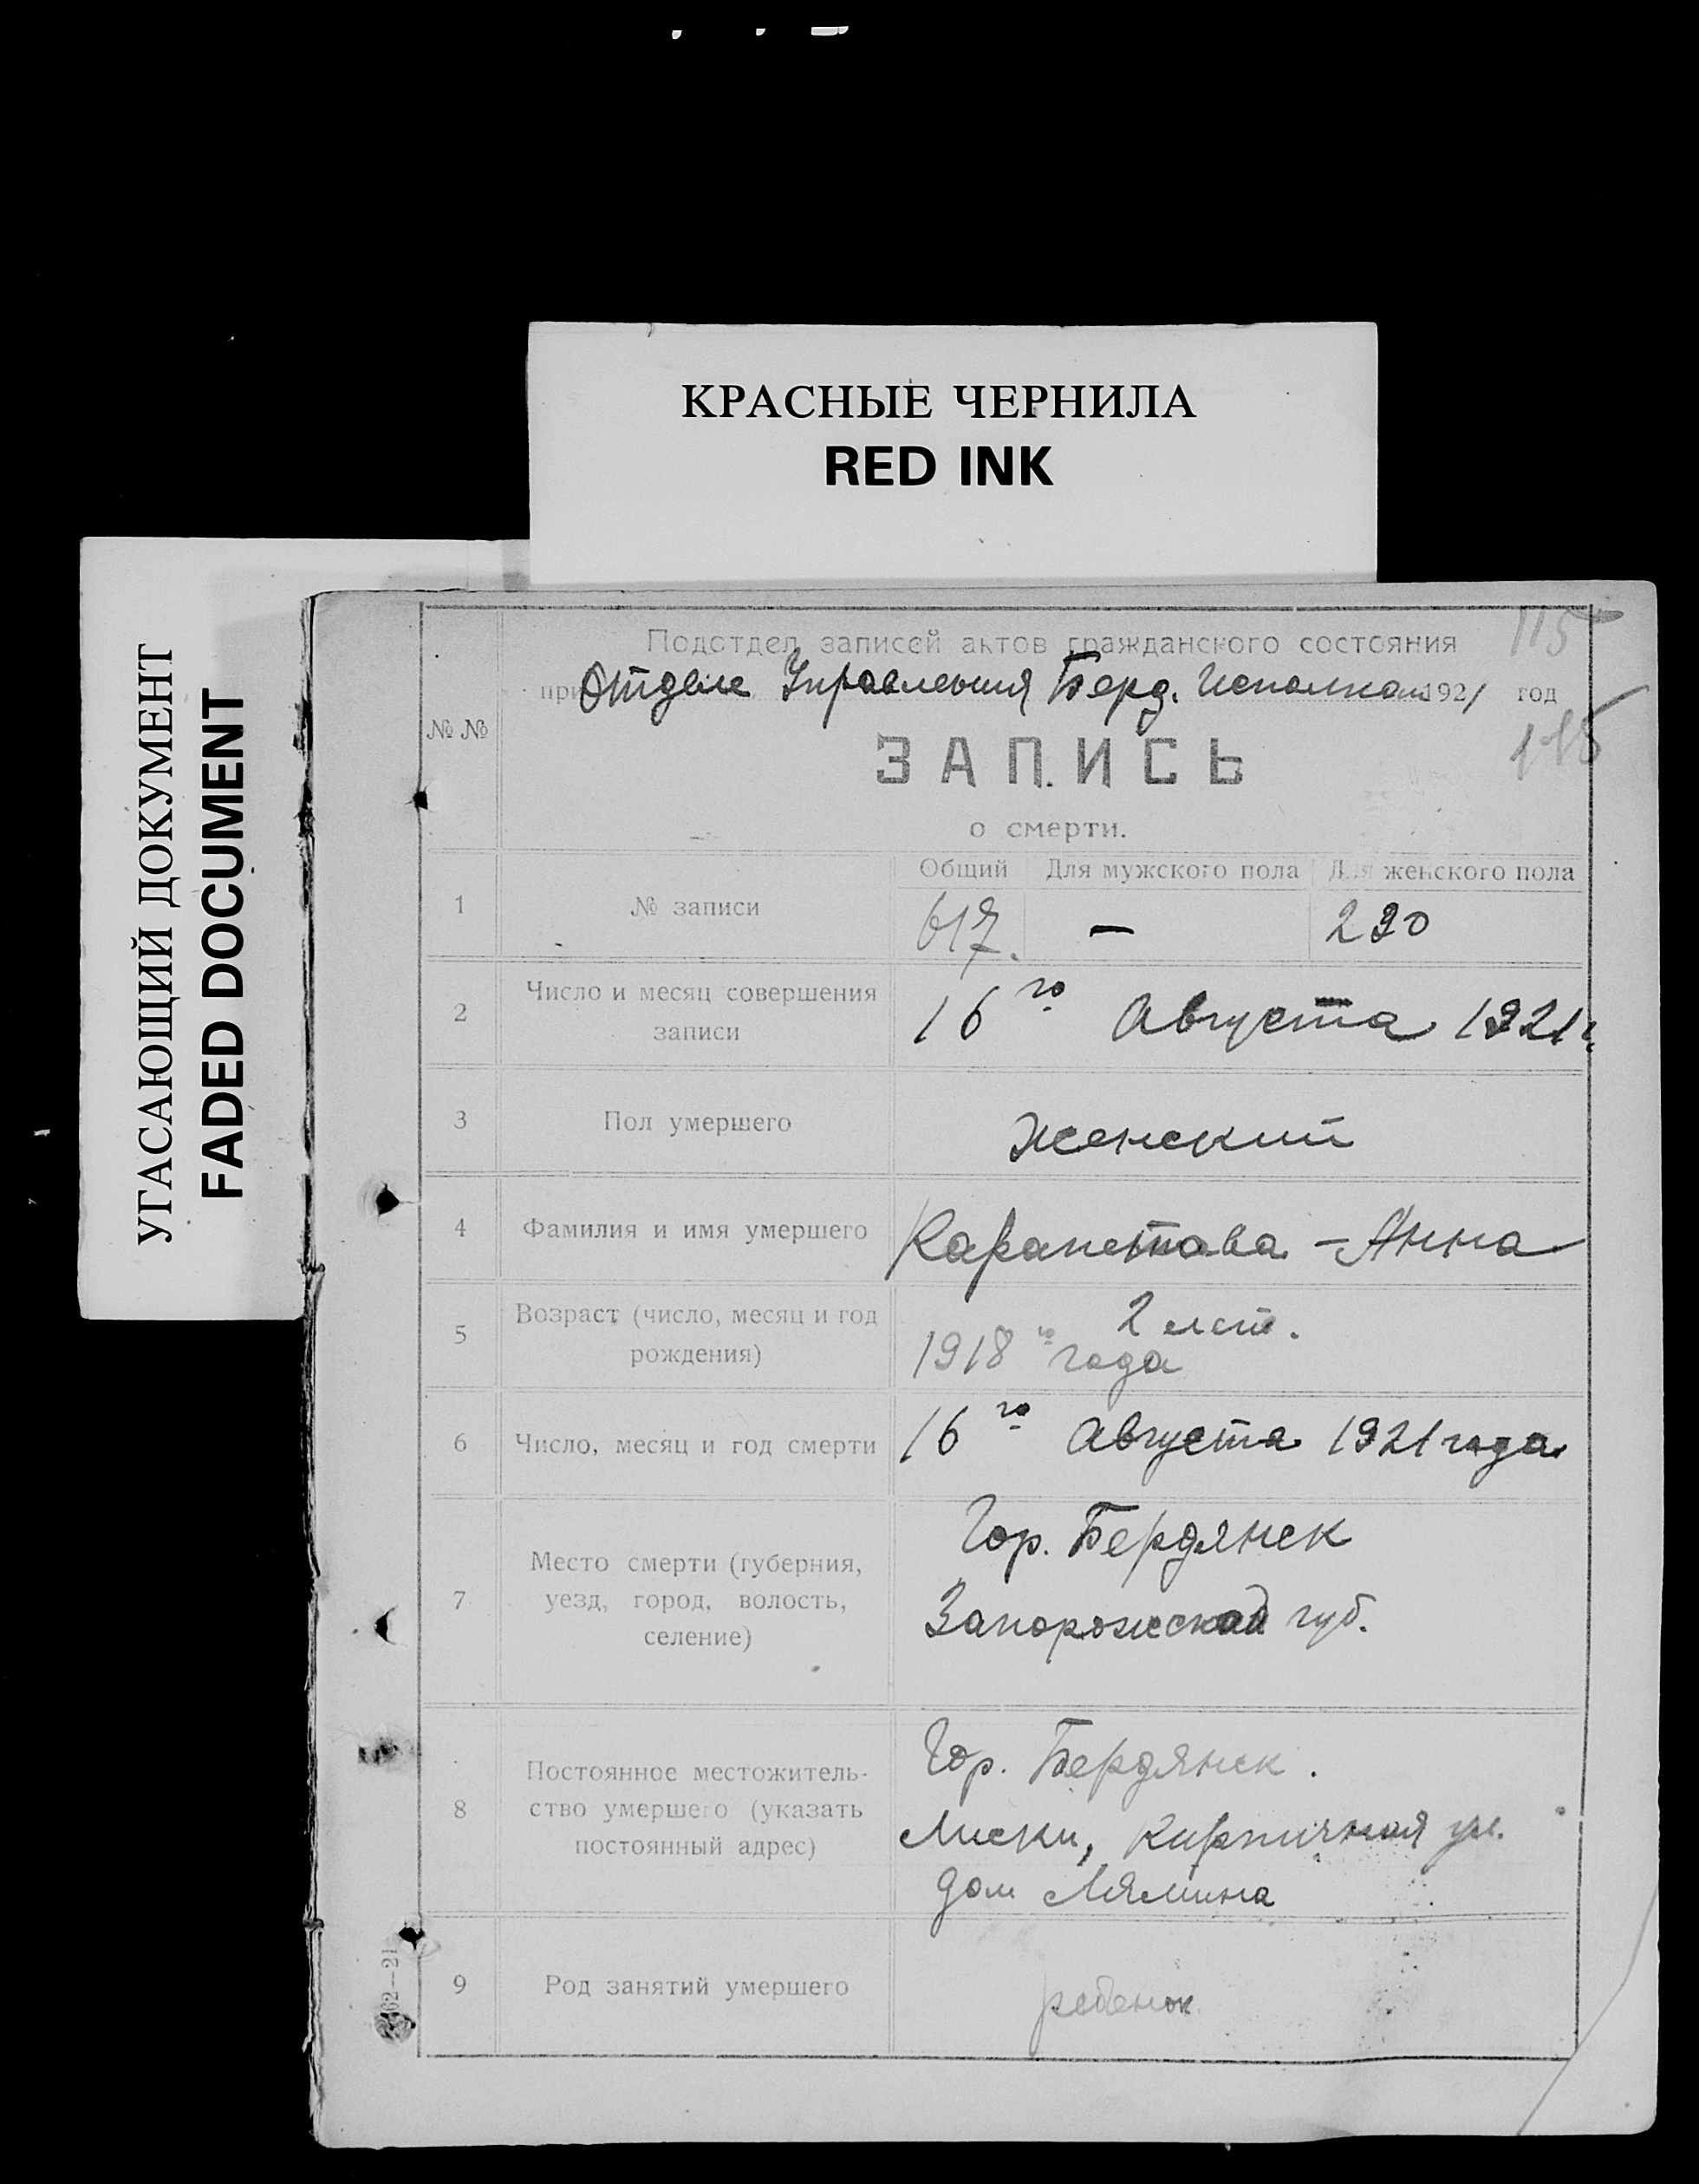 КРАСНЫЕ ЧЕРНИЛА
RED INK
УГАСАЮЩИЙ ДОКУМЕНТ
FADED DOCUMENT
115
Подотдел записей актов гражданского состояния
при Отделе Управления Берд. Исполком 1921 год
№ №
ЗАПИСЬ
о смерти.
Общий Для мужского пола Для женского пола
1 № записи 617. — 290
2 Число и месяц совершения записи 16го Августа 1921 г.
3 Пол умершего Женский
4 Фамилия и имя умершего Карапетова - Анна
5 Возраст (число, месяц и год рождения) 2 лет.
1918 го года
6 Число, месяц и год смерти 16го Августа 1921 года
7 Место смерти (губерния, уезд, город, волость, селение) Гор. Бердянск
Запорожской губ.
8 Постоянное местожитель-
ство умершего (указать постоянный адрес) Гор. Бердянск.
Лиски, Кирпичная ул.
дом Лямина
9 Род занятий умершего ребенок
62—21